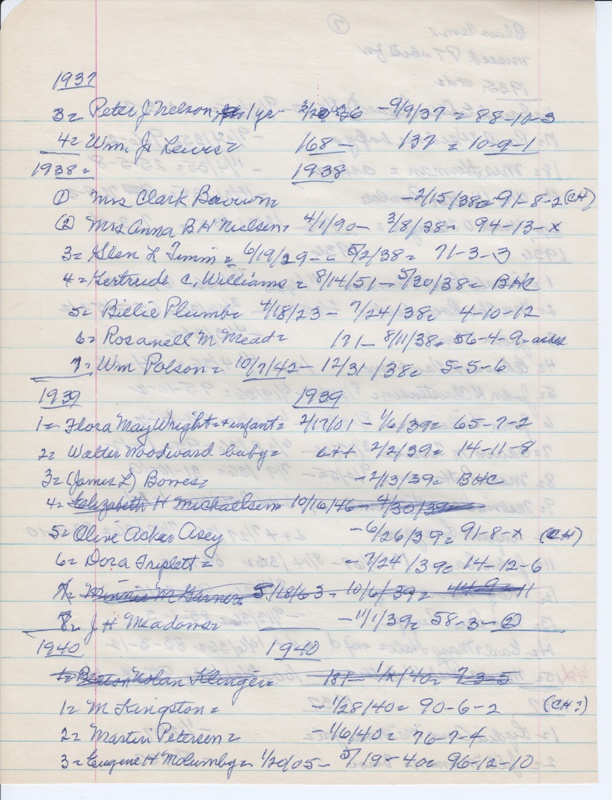 1937
3= Peter J. Nelson, 1 yr - 9/9/37 = 88-10-3
4= Wm. Jr Lewis= 168 - 137 = 10-9-1
1938= 1938
① Mrs Clark Brown= - 2/15/38= 91-8-2 (CH)
② Mrs Anna B H Nielsen= 4/1/90 - 3/8/38= 94-13-x
3= Glen L Timm = 6/19/29 - 5/2/38= 71-3-3
4= Gertrude C. Williams= 8/14/51 - 5/20/38= BHC
5= Billie Plumb= 4/18/23 - 7/24/38= 4-10-12
6= Rosanell M Mead= 171 - 8/11/38= 56-4-9= ashes
7= Wm Polson= 10/7/42 - 12/31/38= 5-5-6
1939 1939
1= Flora May Wright= + infant= 2/17/01 - 1/6/39= 65-7-2
2= Walter Woodward baby= 2/2/39= 14-11-8
3= (James L) Bowes= - 2/13/39= BHC
4= Elizabeth H Michaelsen 10/16/46 - 4/30/39=
5= Olive Acker Asey - 6/26/39= 91-8-x (CH)
6= Dora Triplett= - 7/24/39= 14-12-6
7= Minnie M Garner= 5/18/63 - 10/6/39= 44-9-11
8= J H Meadows= - 11/1/39= 58-3-②
1940 1940
1= Nolan Klinger= 181 - 1/x/40= 7-3-5
1= M Kingston= - 1/28/40= 90-6-2 (CH?)
2= Martin Petersen= - 1/6/40= 76-7-4
3= Eugene H McLumby= 1/20/05 - 5/19-40= 96-12-10